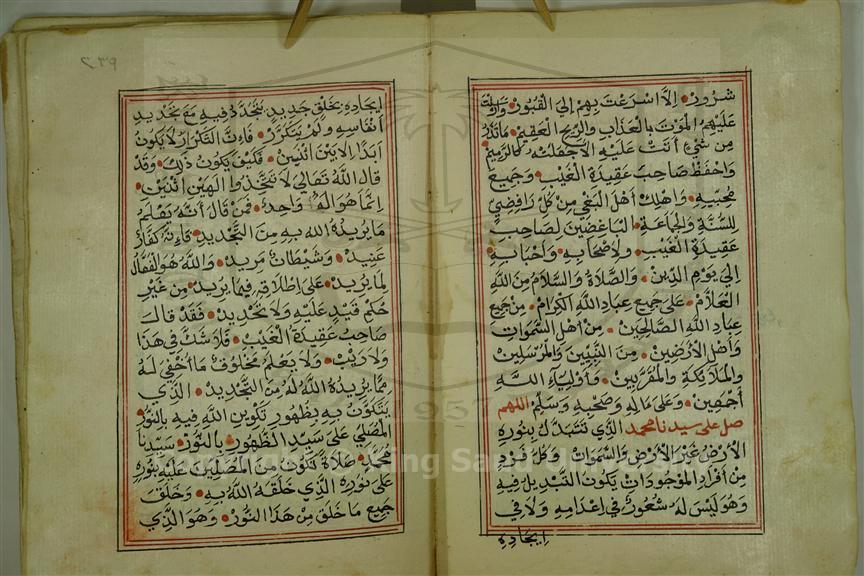 شرور إلا اسرعت بهم إلي القبور وارسلت
عليهم الموت بالعذاب والريح العقيم ماتذر
من شيء أتت عليه إلاجعلته كالرميم
واحفظ صاحب عقيدة الغيب وجميع
محبيه واهلك أهل البغي من كل رافضي
للسنة والجماعة الباغضين لصاحب
عقيدة الغيب ولاصحابه وأحبابه
إلي يوم الدين والصلاة والسلام من الله
العلام علي جميع عباد الله الكرام من جميع
عباد الله الصالحين من أهل السموات
وأهل الأرضين من النبيين والمرسلين
والملائكة والمقربين وأولياء الله
أجمعين وعلي ءاله وصحبه وسلم اللهم
صل علي سيدنا محمد الذي تتبدل بنوره
الأرض غير الأرض والسموات وكل فيه
من أفراد الموجودات يكون التبديل فيه
وهو ليس له شعور في إعدامه ولا في
إيجاده
٢٣٩
إيجاده بخلق جديد يتجدد فيه مع تجديد
أنفاسه ولم يتكرر فإن التكرار لا يكون
أبدا إلا بين اثنين فكيف يكون ذلك وقد
قال الله تعالي لا تتخذوا إلهين اثنين
إنما هو اله واحد فمن قال أنه يعلم
ما يريده الله به من التجديد فإنه كفار
عنيد وشيطان مريد والله هو الفعال
لما يريد علي إطلاقه فيما يريد من غير
حكم قيد عليه ولا تحديد فقد قال
صاحب عقيدة الغيب فلا شك في هذا
ولا ريب ولا يعلم مخلوق ما أخفي له
مما يريده الله له من التجديد الذي
يتكون به بظهور تكوين الله فيه بالنور
المصلي علي سيد الظهور بالنور سيدنا
محمد صلاة تكون من المصلين عليه بنوره
علي نوره الذي خلقه الله به وخلق
جميع ما خلق من هذا النور وهو الذي
1957
King Saud University